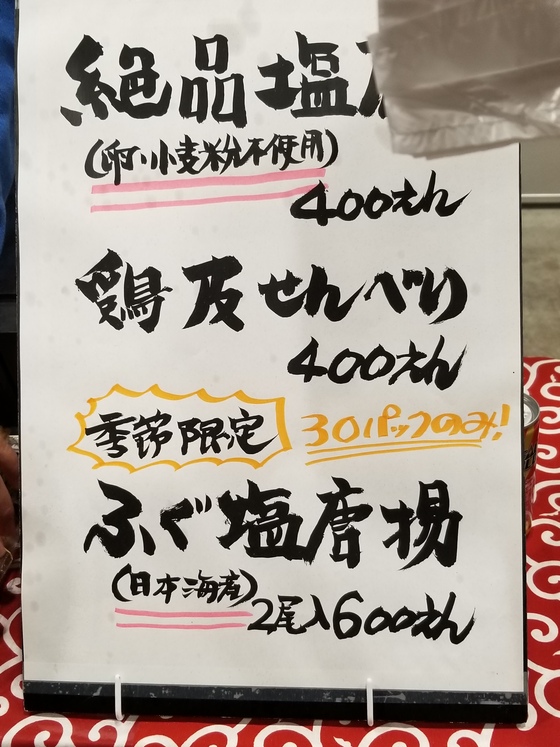 絶品塩
(卵、小麦粉不使用)
400えん
鶏皮せんべい
400えん
季節限定 30パックのみ!
ふぐ塩唐揚
(日本海産)
2尾入600えん